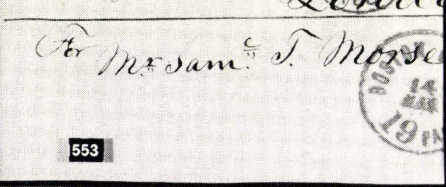 For Mr Sam.c T. Morse
14
MAR
19
553